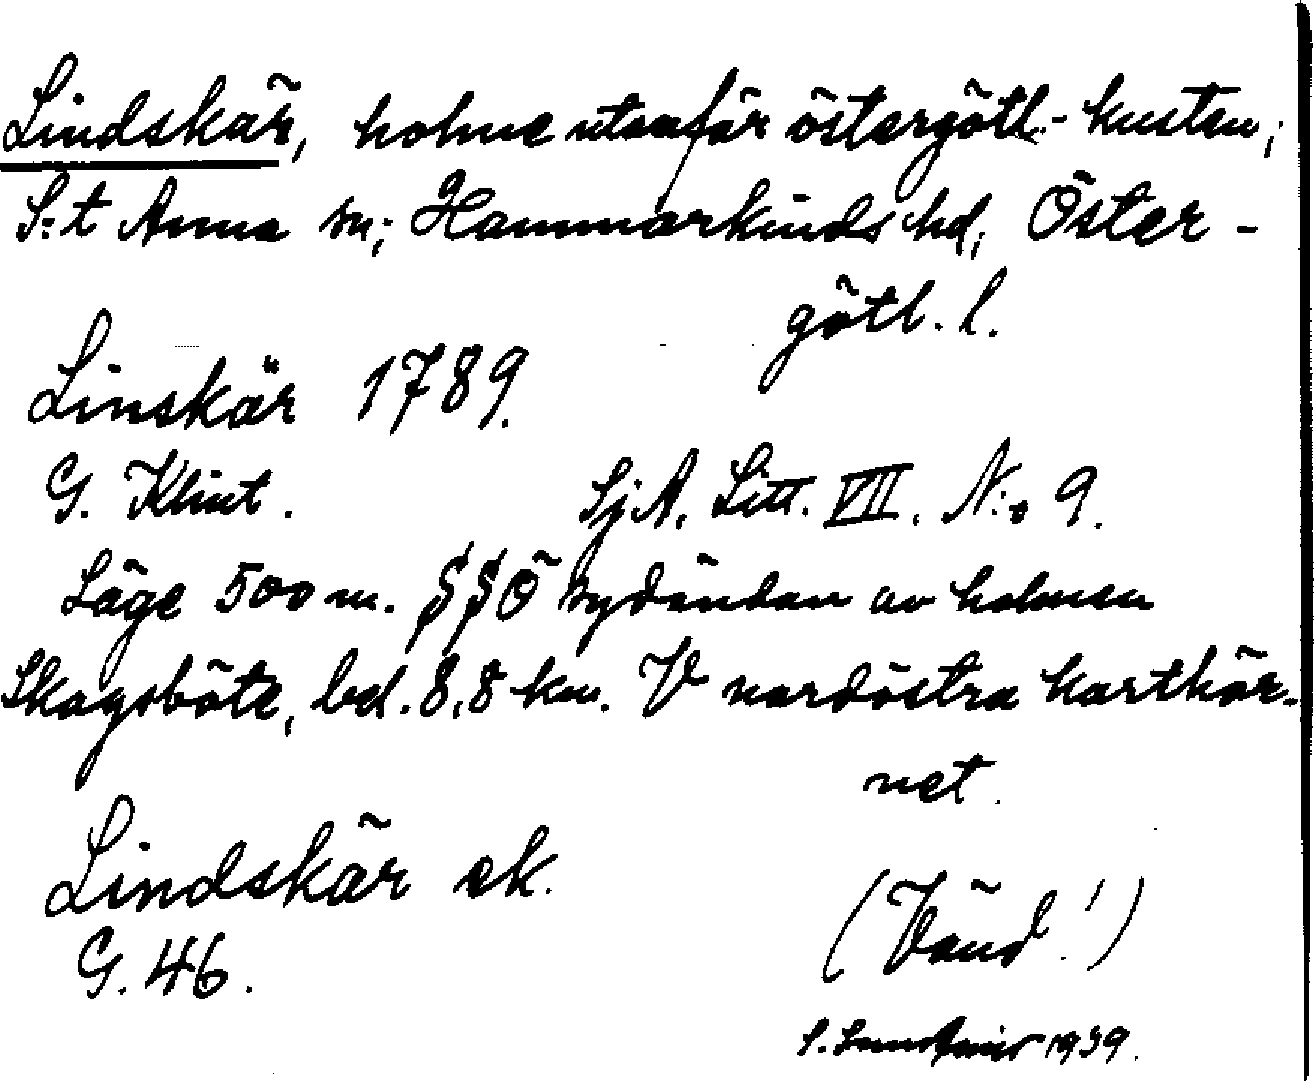 Lindskär, holme utanför östergötl.-kusten;
S:t Anna sn; Hammarkinds hd, Öster-
götl. l.
Linskär 1789.
G. Klint. SjA. Litt. VII. N:o 9.
Läge 500 m. SSÖ sydändan av holmen
Skogsböte, bel. 8,8 km. V nordöstra karthör-
net.
Lindskär ek.
G. 46.
(Vänd!)
S. 1939.